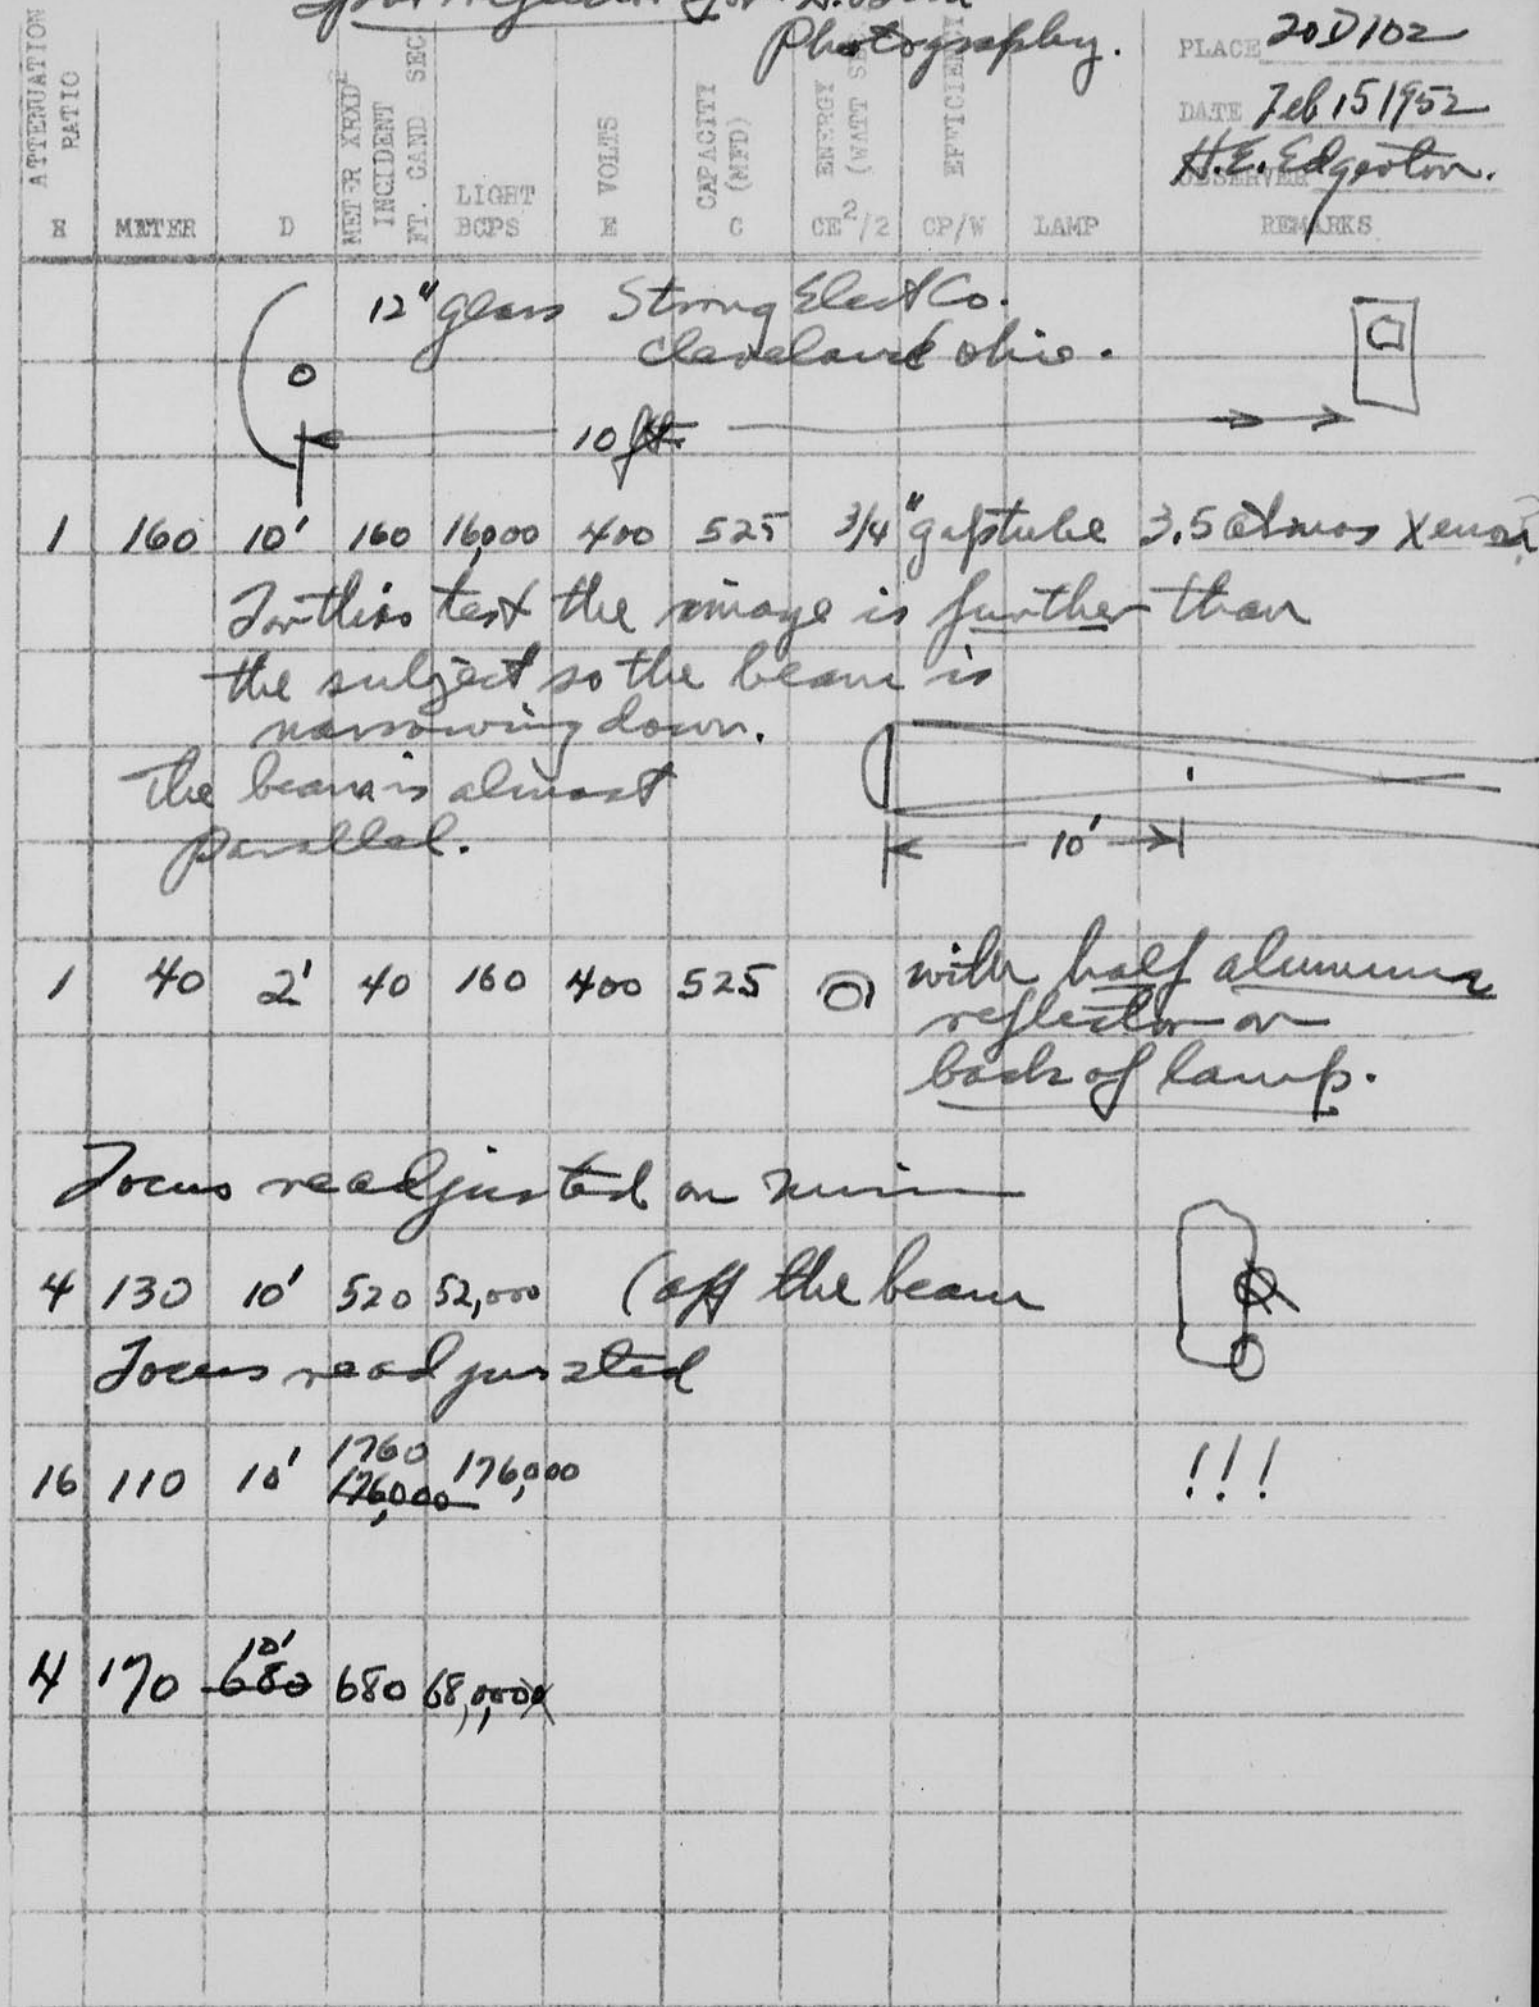 Photography.
PLACE 20D102
DATE Feb 15 1952
H.E. Edgerton.
OBSERVER
ATTENUATION RATIO
METER XRXD²
INCIDENT
FT. CAND SEC
LIGHT
BCPS
VOLTS
CAPACITY
(MFD)
ENERGY
(WATT SEC
EFFICIENCY
METER D E C CE²/2 CP/W LAMP REMARKS
12" glass Strong Elect Co.
Cleveland Ohio.
10 ft.
1 160 10' 160 16,000 400 525 3/4" gap tube 3.5 atmos Xenon
For this test the image is further than
the subject so the beam is
narrowing down.
The beam is almost
parallel.
10'
1 40 2' 40 160 400 525 with half aluminum
reflector on
back of lamp.
Focus readjusted on
4 130 10' 520 52,000 (off the beam
Focus readjusted
1760
16 110 10' 176,000 176,000 !!!
10'
4 170 680 680 68,000